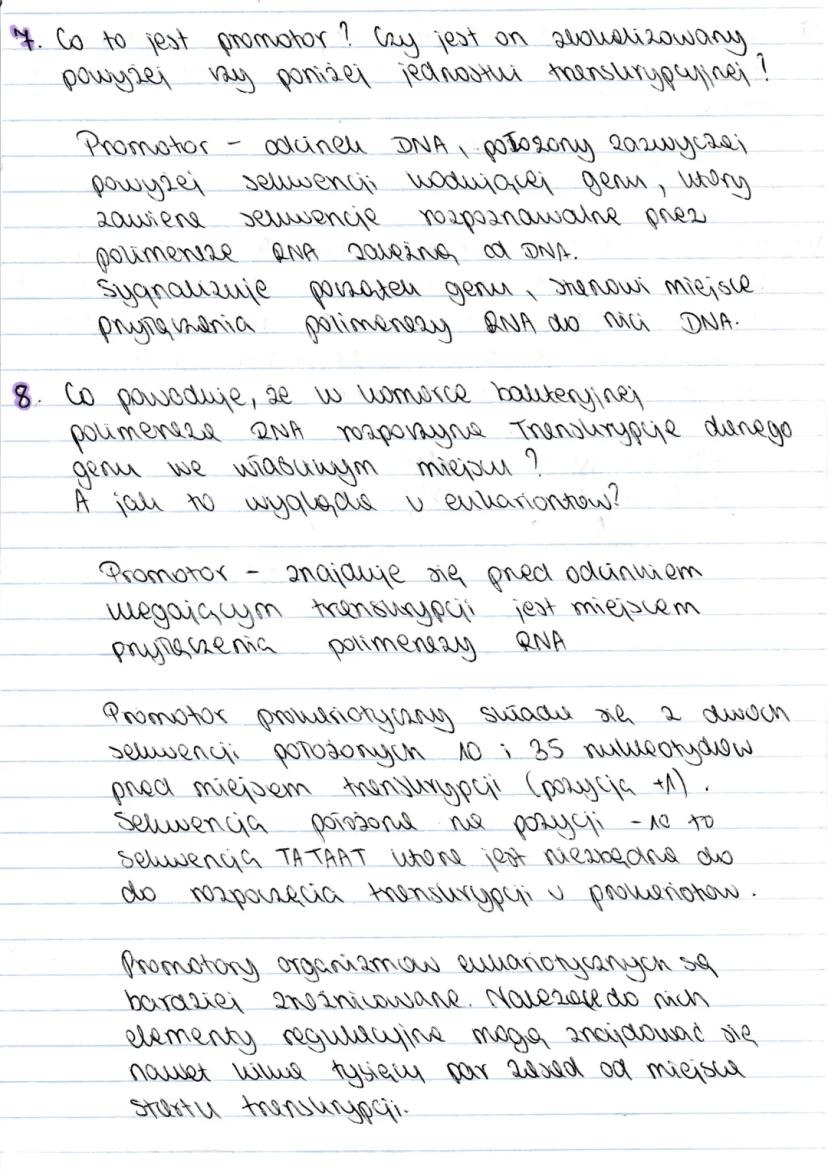 7. Co to jest promotor? Czy jest on zlokalizowany
powyżej czy poniżej jednostki transkrypcyjnej?
Promotor - odcinek DNA, położony zazwyczaj
powyżej sekwencji kodującej genu, który
zawiera sekwencje rozpoznawalne przez
polimerazę RNA zależną od DNA.
Sygnalizuje początek genu, stanowi miejsce
przyłączania polimerazy RNA do nici DNA.
8. Co powoduje, że w komórce bakteryjnej
polimeraza RNA rozpoczyna transkrypcję danego
genu we właściwym miejscu?
A jak to wygląda u eukariontów?
Promotor - znajduje się przed odcinkiem
ulegającym transkrypcji jest miejscem
przyłączenia polimerazy RNA
Promotor prokariotyczny składa się z dwóch
sekwencji położonych 10 i 35 nukleotydów
przed miejscem transkrypcji (pozycja +1).
Sekwencja położona na pozycji -10 to
sekwencja TATAAT która jest niezbędna do
do rozpoczęcia transkrypcji u prokariotów.
Promotory organizmów eukariotycznych są
bardziej zróżnicowane. Należące do nich
elementy regulacyjne mogą znajdować się
nawet kilka tysięcy par zasad od miejsca
startu transkrypcji.